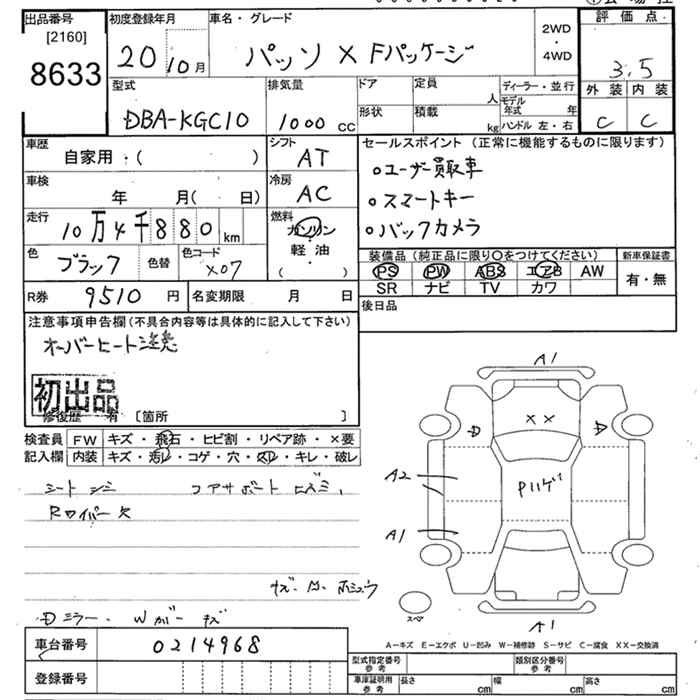 出品番号
[2160]
8633
初度登録年月
20 10月
車名・グレード
パッソ X Fパッケージ
2WD
・
4WD
評価点
3.5
外装 内装
C C
型式
DBA-KGC10
排気量
1000 cc
ドア
形状
定員
人
積載
kg
ディーラー・並行
モデル年式 年
ハンドル 左・右
車歴
自家用・( )
シフト
AT
車検
年 月( 日)
冷房
AC
走行
10万4千880km
燃料
ガソリン
軽油
( )
色
ブラック
色替
色コード
X07
R券 9510円
名変期限 月 日
セールスポイント(正常に機能するものに限ります)
○ユーザー買取車
○スマートキー
○バックカメラ
装備品(純正品に限り○をつけてください)
PS PW ABS エアB AW
SR ナビ TV カワ
新車保証書
有・無
後日品
注意事項申告欄(不具合内容等は具体的に記入して下さい)
オーバーヒート注意
初出品
修復歴 有 [箇所 ]
検査員記入欄
FW キズ・飛石・ヒビ割・リペア跡・×要
内装 キズ・汚レ・コゲ・穴・スレ・キレ・破レ
シート シミ
Rワイパー欠
ミラー W ガー キズ
A1
XX
D D
A2
A1
A1
スペア
A-キズ E-エクボ U-凹み W-補修跡 S-サビ C-腐食 XX-交換済
車台番号 0214968
登録番号
型式指定番号 参考
類別区分番号 参考
車庫証明用 参考
長さ cm
幅 cm
高さ cm